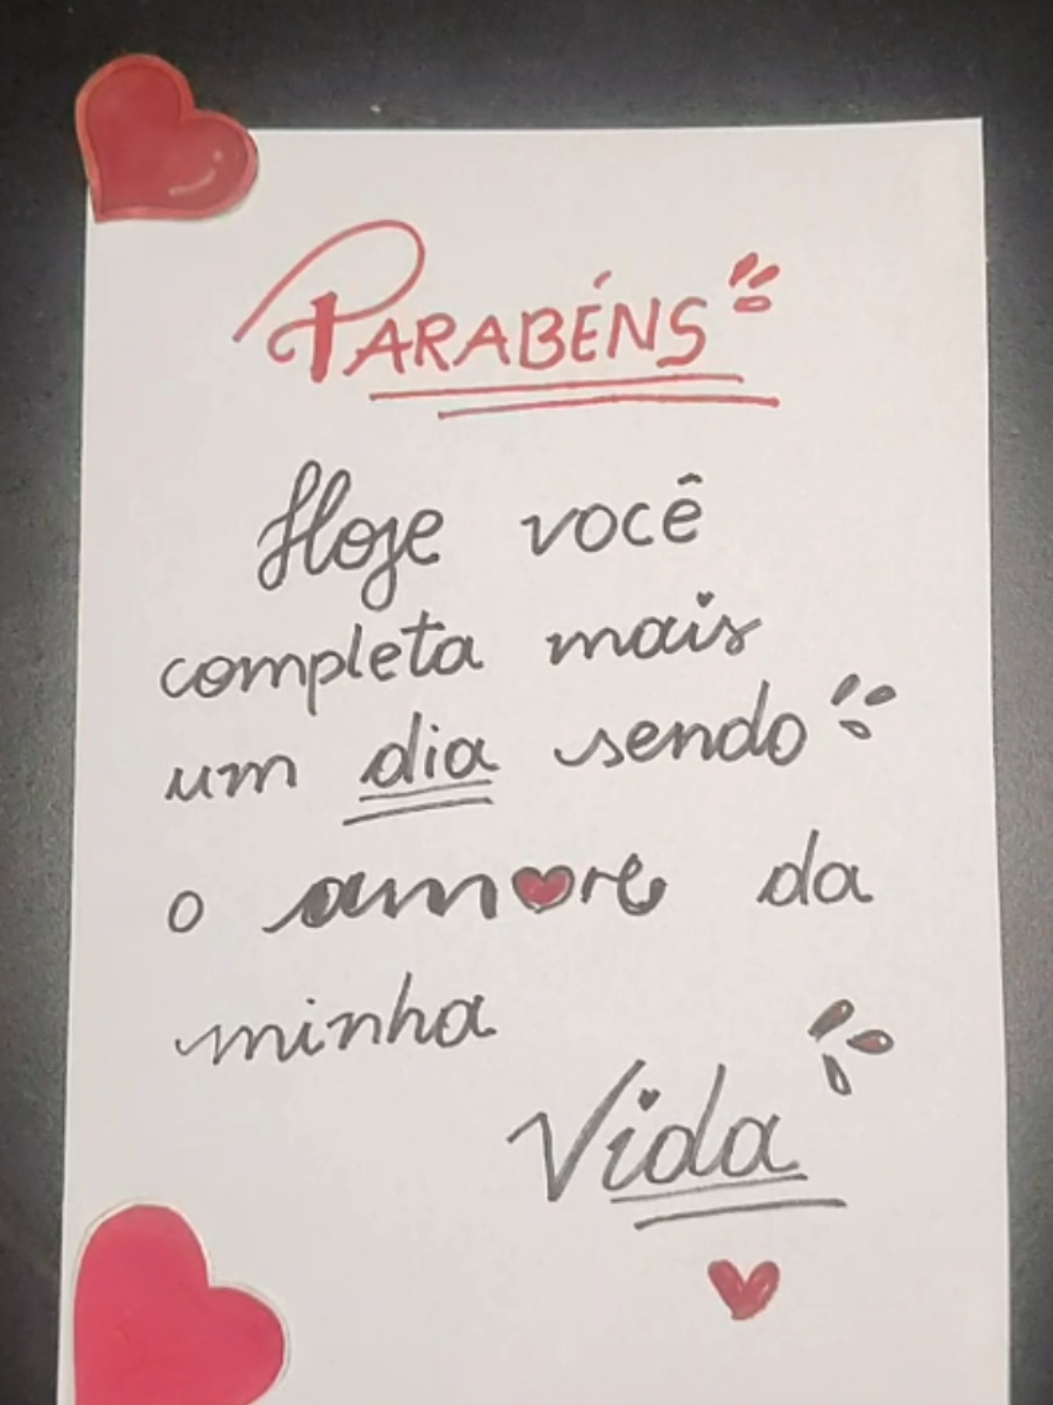 PARABÉNS
Hoje você
completa mais
um dia sendo
o am♥re da
minha
Vida